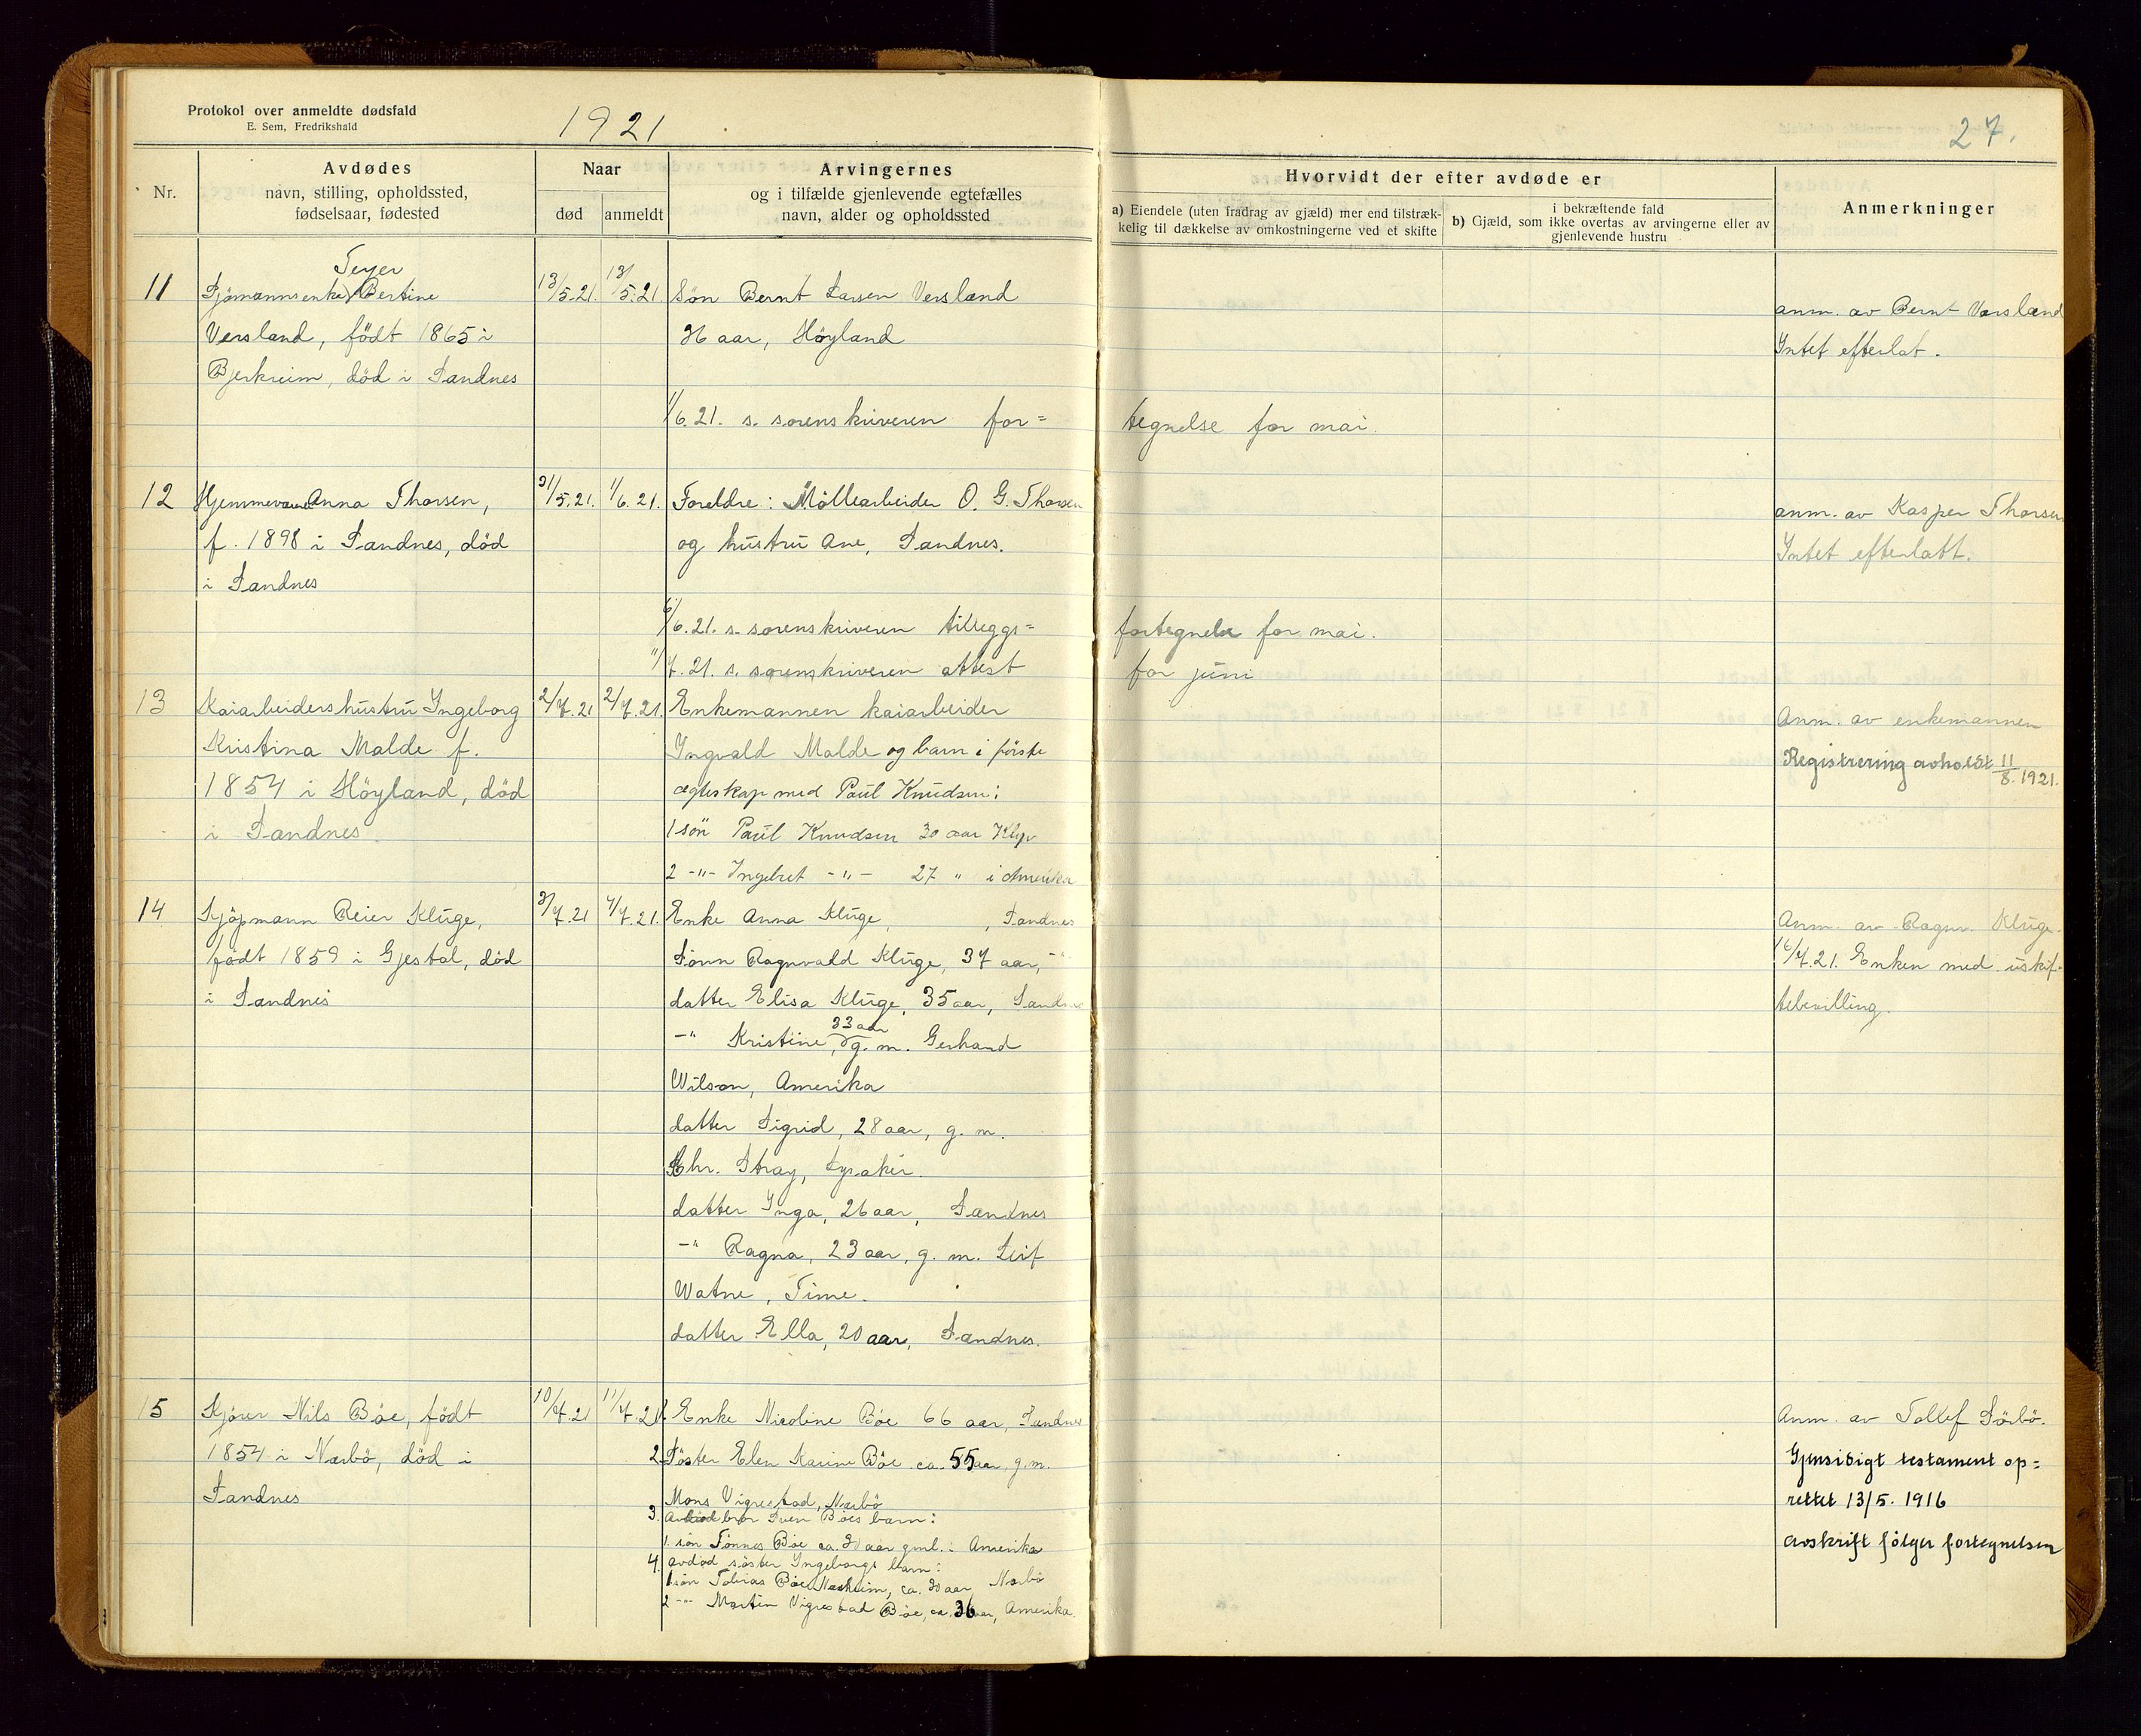 Protokol over anmeldte dødsfald
E. Sem, Fredrikshald
1921
27.
Nr.
Avdødes
navn, stilling, opholdssted,
fødselsaar, fødested
Naar
død
anmeldt
Arvingernes
og i tilfælde gjenlevende egtefælles
navn, alder og opholdssted
Hvorvidt der efter avdøde er
a) Eiendele (uten fradrag av gjæld) mer end tilstræk-
kelig til dækkelse av omkostningerne ved et skifte
i bekræftende fald
b) Gjæld, som ikke overtas av arvingerne eller av
gjenlevende hustru
Anmerkninger
11
Teyer
Sjömannsenke Bertine
Versland, födt 1865 i
Bjerkreim, död i Sandnes
13/5.21.
13/5.21.
Sön Bernt Larsen Versland
36 aar, Höyland
anm. av Bernt Versland
Intet efterlat.
1/6.21. s. sorenskriveren for=
tegnelse for mai.
12
Hjemmeværende Anna Thorsen,
f. 1898 i Sandnes, död
i Sandnes
31/5.21.
1/6.21.
Foreldre: Möllearbeider O. G. Thorsen
og hustru Ane, Sandnes.
anm. av Kasper Thorsen
Intet efterlatt.
6/6.21. s. sorenskriveren tilleggs=
fortegnelse for mai.
11/7.21. s. sorenskriveren attest
for juni
13
Kaiarbeidershustru Ingeborg
Kristina Malde f.
1854 i Höyland, död
i Sandnes
2/7.21
2/7.21.
Enkemannen kaiarbeider
Ingvald Malde og barn i förste
egteskap med Paul Knudsen:
1 sön Paul Knudsen 30 aar Klep
2 -"- Ingebret -"- 27 " i Amerika
Anm. av enkemannen
Registrering avholdt 11/8.1921.
14
Kjöpmann Reier Kluge,
födt 1859 i Gjestal, död
i Sandnes
3/7.21
4/7.21.
Enke Anna Kluge, , Sandnes
Sönn Ragnvald Kluge, 37 aar, -"
datter Elisa Kluge, 35 aar, Sandnes
33 aar
-" Kristine, g. m. Gerhard
Wilson, Amerika
datter Sigrid, 28 aar, g. m.
Chr. Stray, Lysaker.
datter Inga, 26 aar, Sandnes
-" Ragna, 23 aar, g. m. Leif
Watne, Time.
datter Ella, 20 aar, Sandnes.
Anm. av Ragnv. Kluge.
16/7.21. Enken med uskif=
tebevilling.
15
Kjörer Nils Böe, födt
1854 i Nærbö, död i
Sandnes
10/7.21
11/7.21
1. Enke Nicoline Böe 66 aar, Sandnes
2. Söster Elen Karine Böe ca. 55 aar, g.m.
Mons Vigrestad, Nærbö
3. Avdöd bror Sven Böes barn:
1. sön Tönnes Böe ca. 30 aar gml. i Amerika
4. avdöd söster Ingeborgs barn:
1 sön Tobias Böe Næsheim, ca. 30 aar, Nærbö
2 -"- Martin Vigrestad Böe, ca. 36 aar, Amerika.
Anm. av Tollef Sörbö.
Gjensidigt testament op=
rettet 13/5. 1916
avskrift følger fortegnelsen